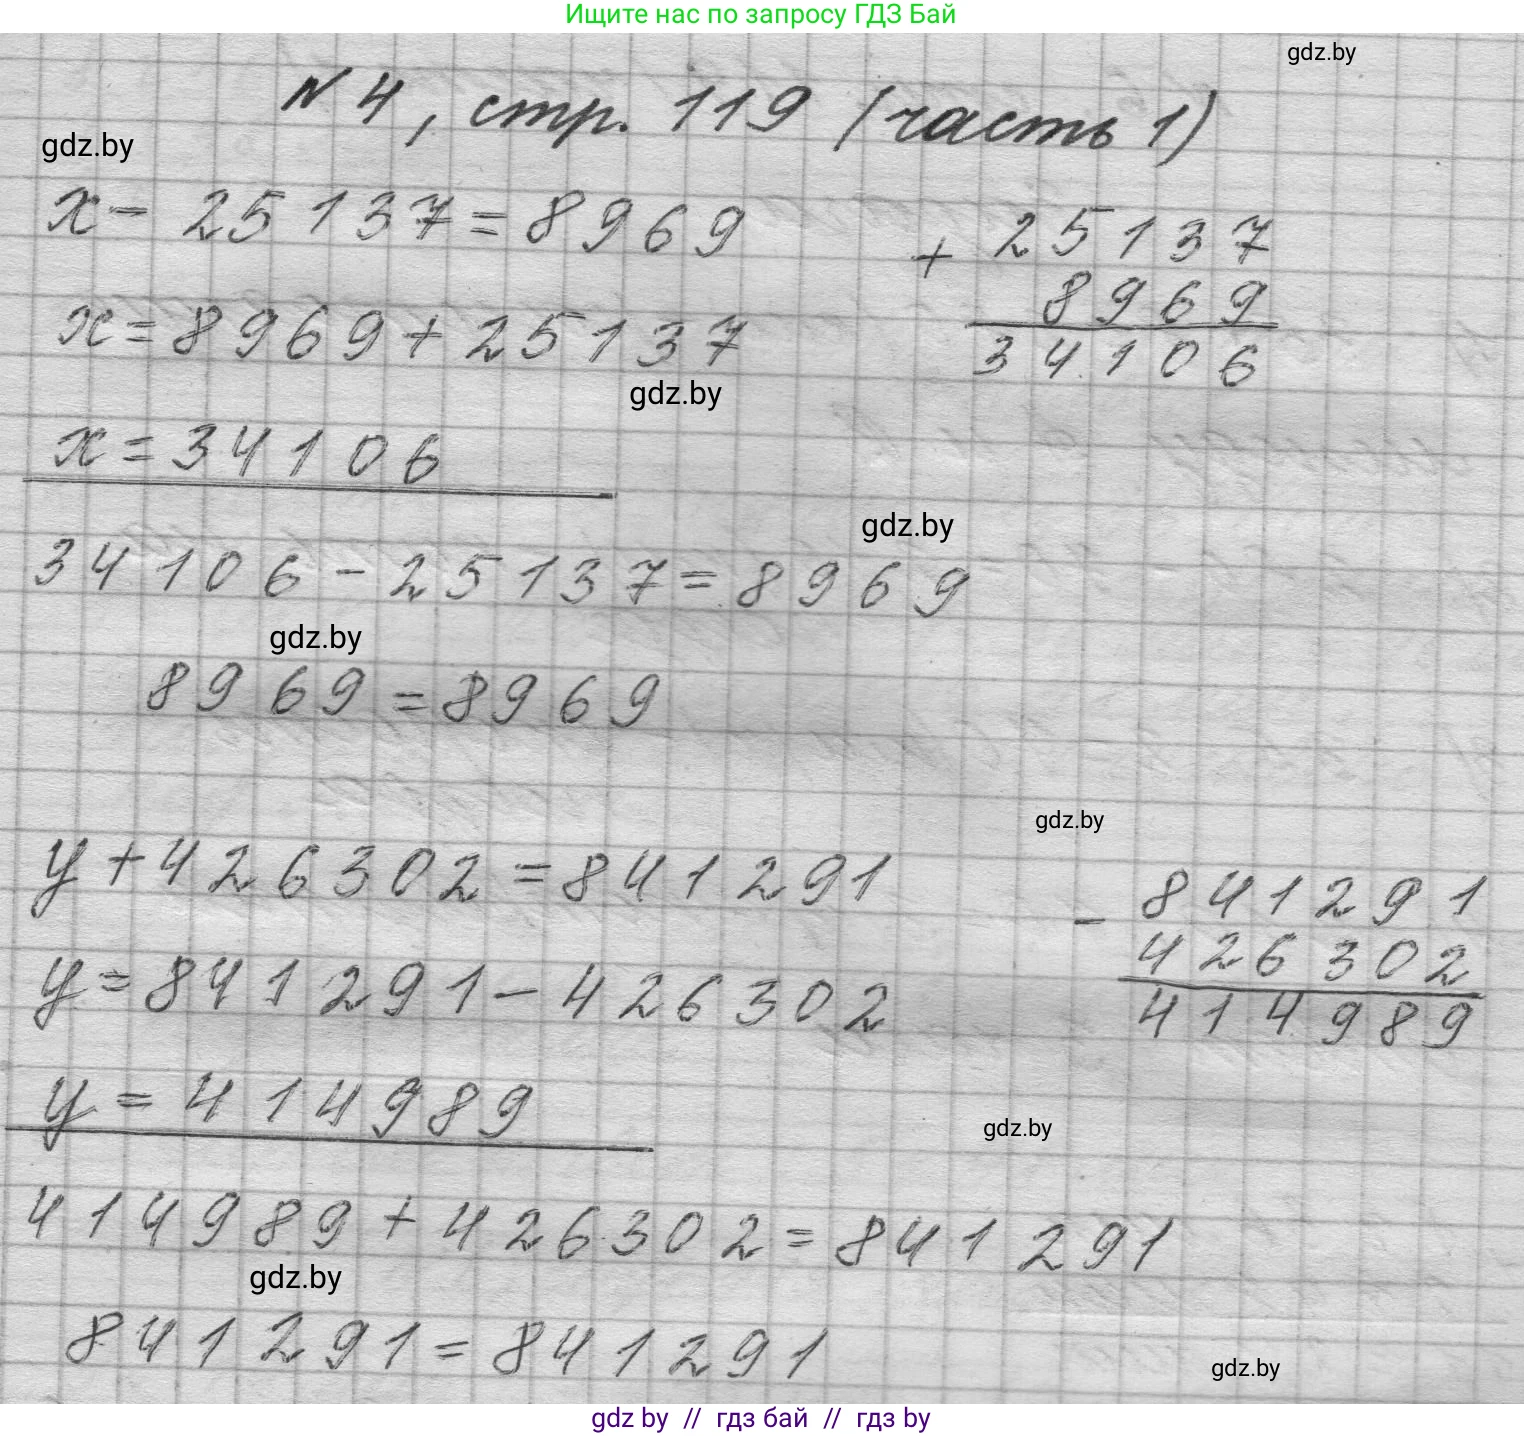 Ищите нас по запросу ГДЗ Бай
gdz.by
№ 4, стр. 119 (часть 1)
gdz.by
x - 25137 = 8969
x = 8969 + 25137
gdz.by
x = 34106
+ 25137
8969
34106
gdz.by
34106 - 25137 = 8969
gdz.by
8969 = 8969
gdz.by
y + 426302 = 841291
y = 841291 - 426302
y = 414989
- 841291
426302
414989
gdz.by
414989 + 426302 = 841291
gdz.by
841291 = 841291
gdz.by
gdz by // гдз бай // гдз by